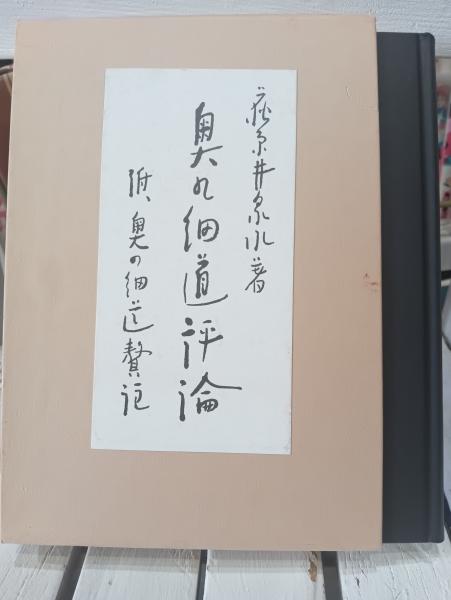 荻原井泉水著
奥の細道評論
附、奥の細道贅記